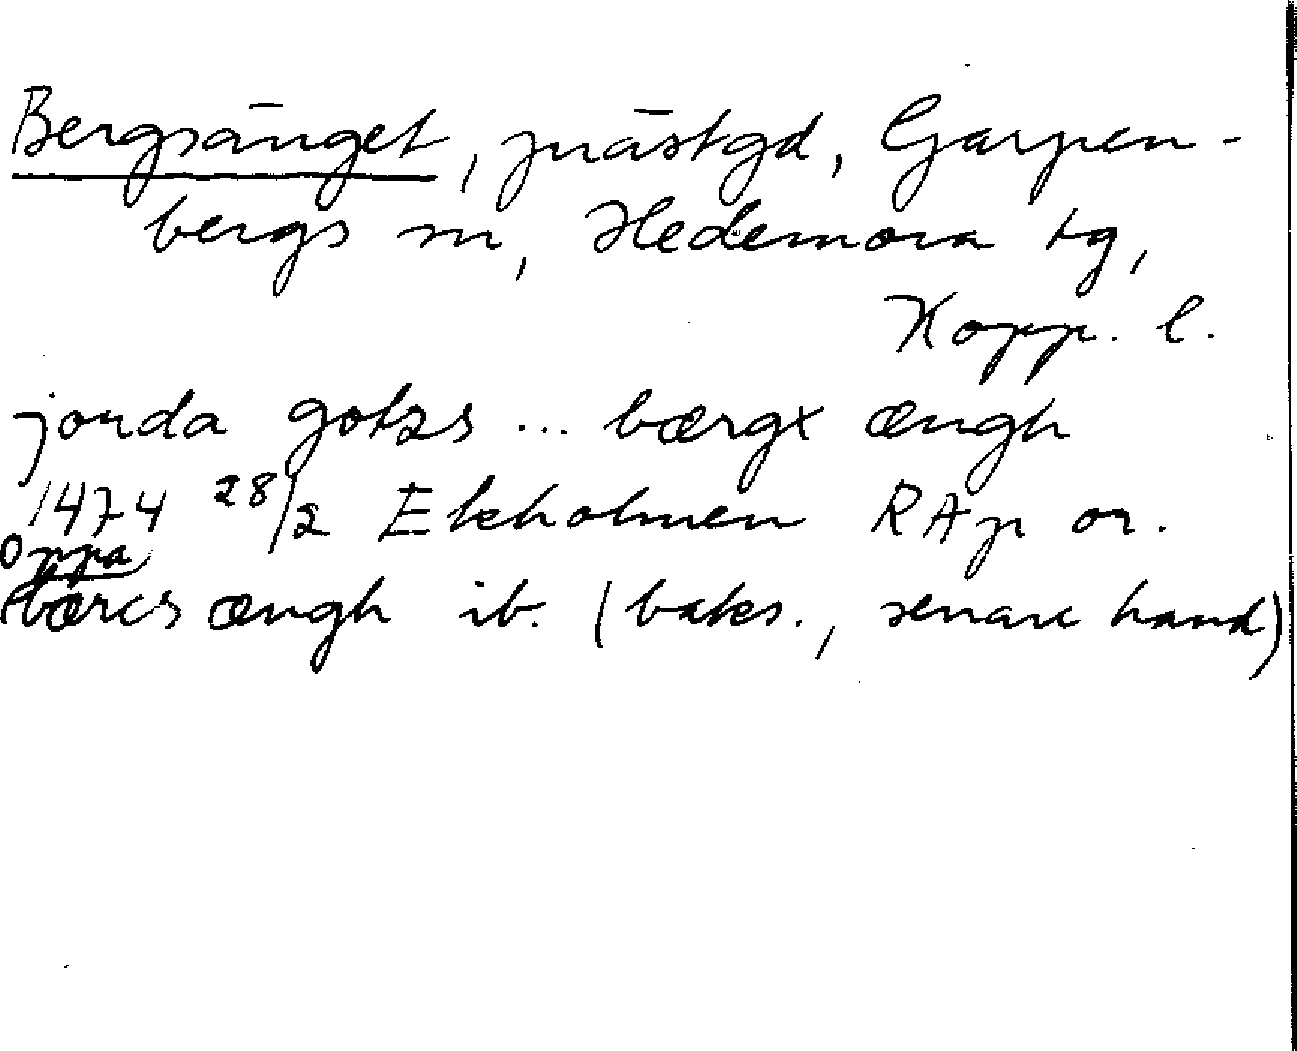 Bergsänget, prästgd, Garpen-
bergs sn, Hedemora tg,
Kopp. l.
jorda gotzs ... bærgx ængh
1474 28/2 Ekholmen RAp or.
Oppa
bærcs ængh ib. (baks., senare hand)